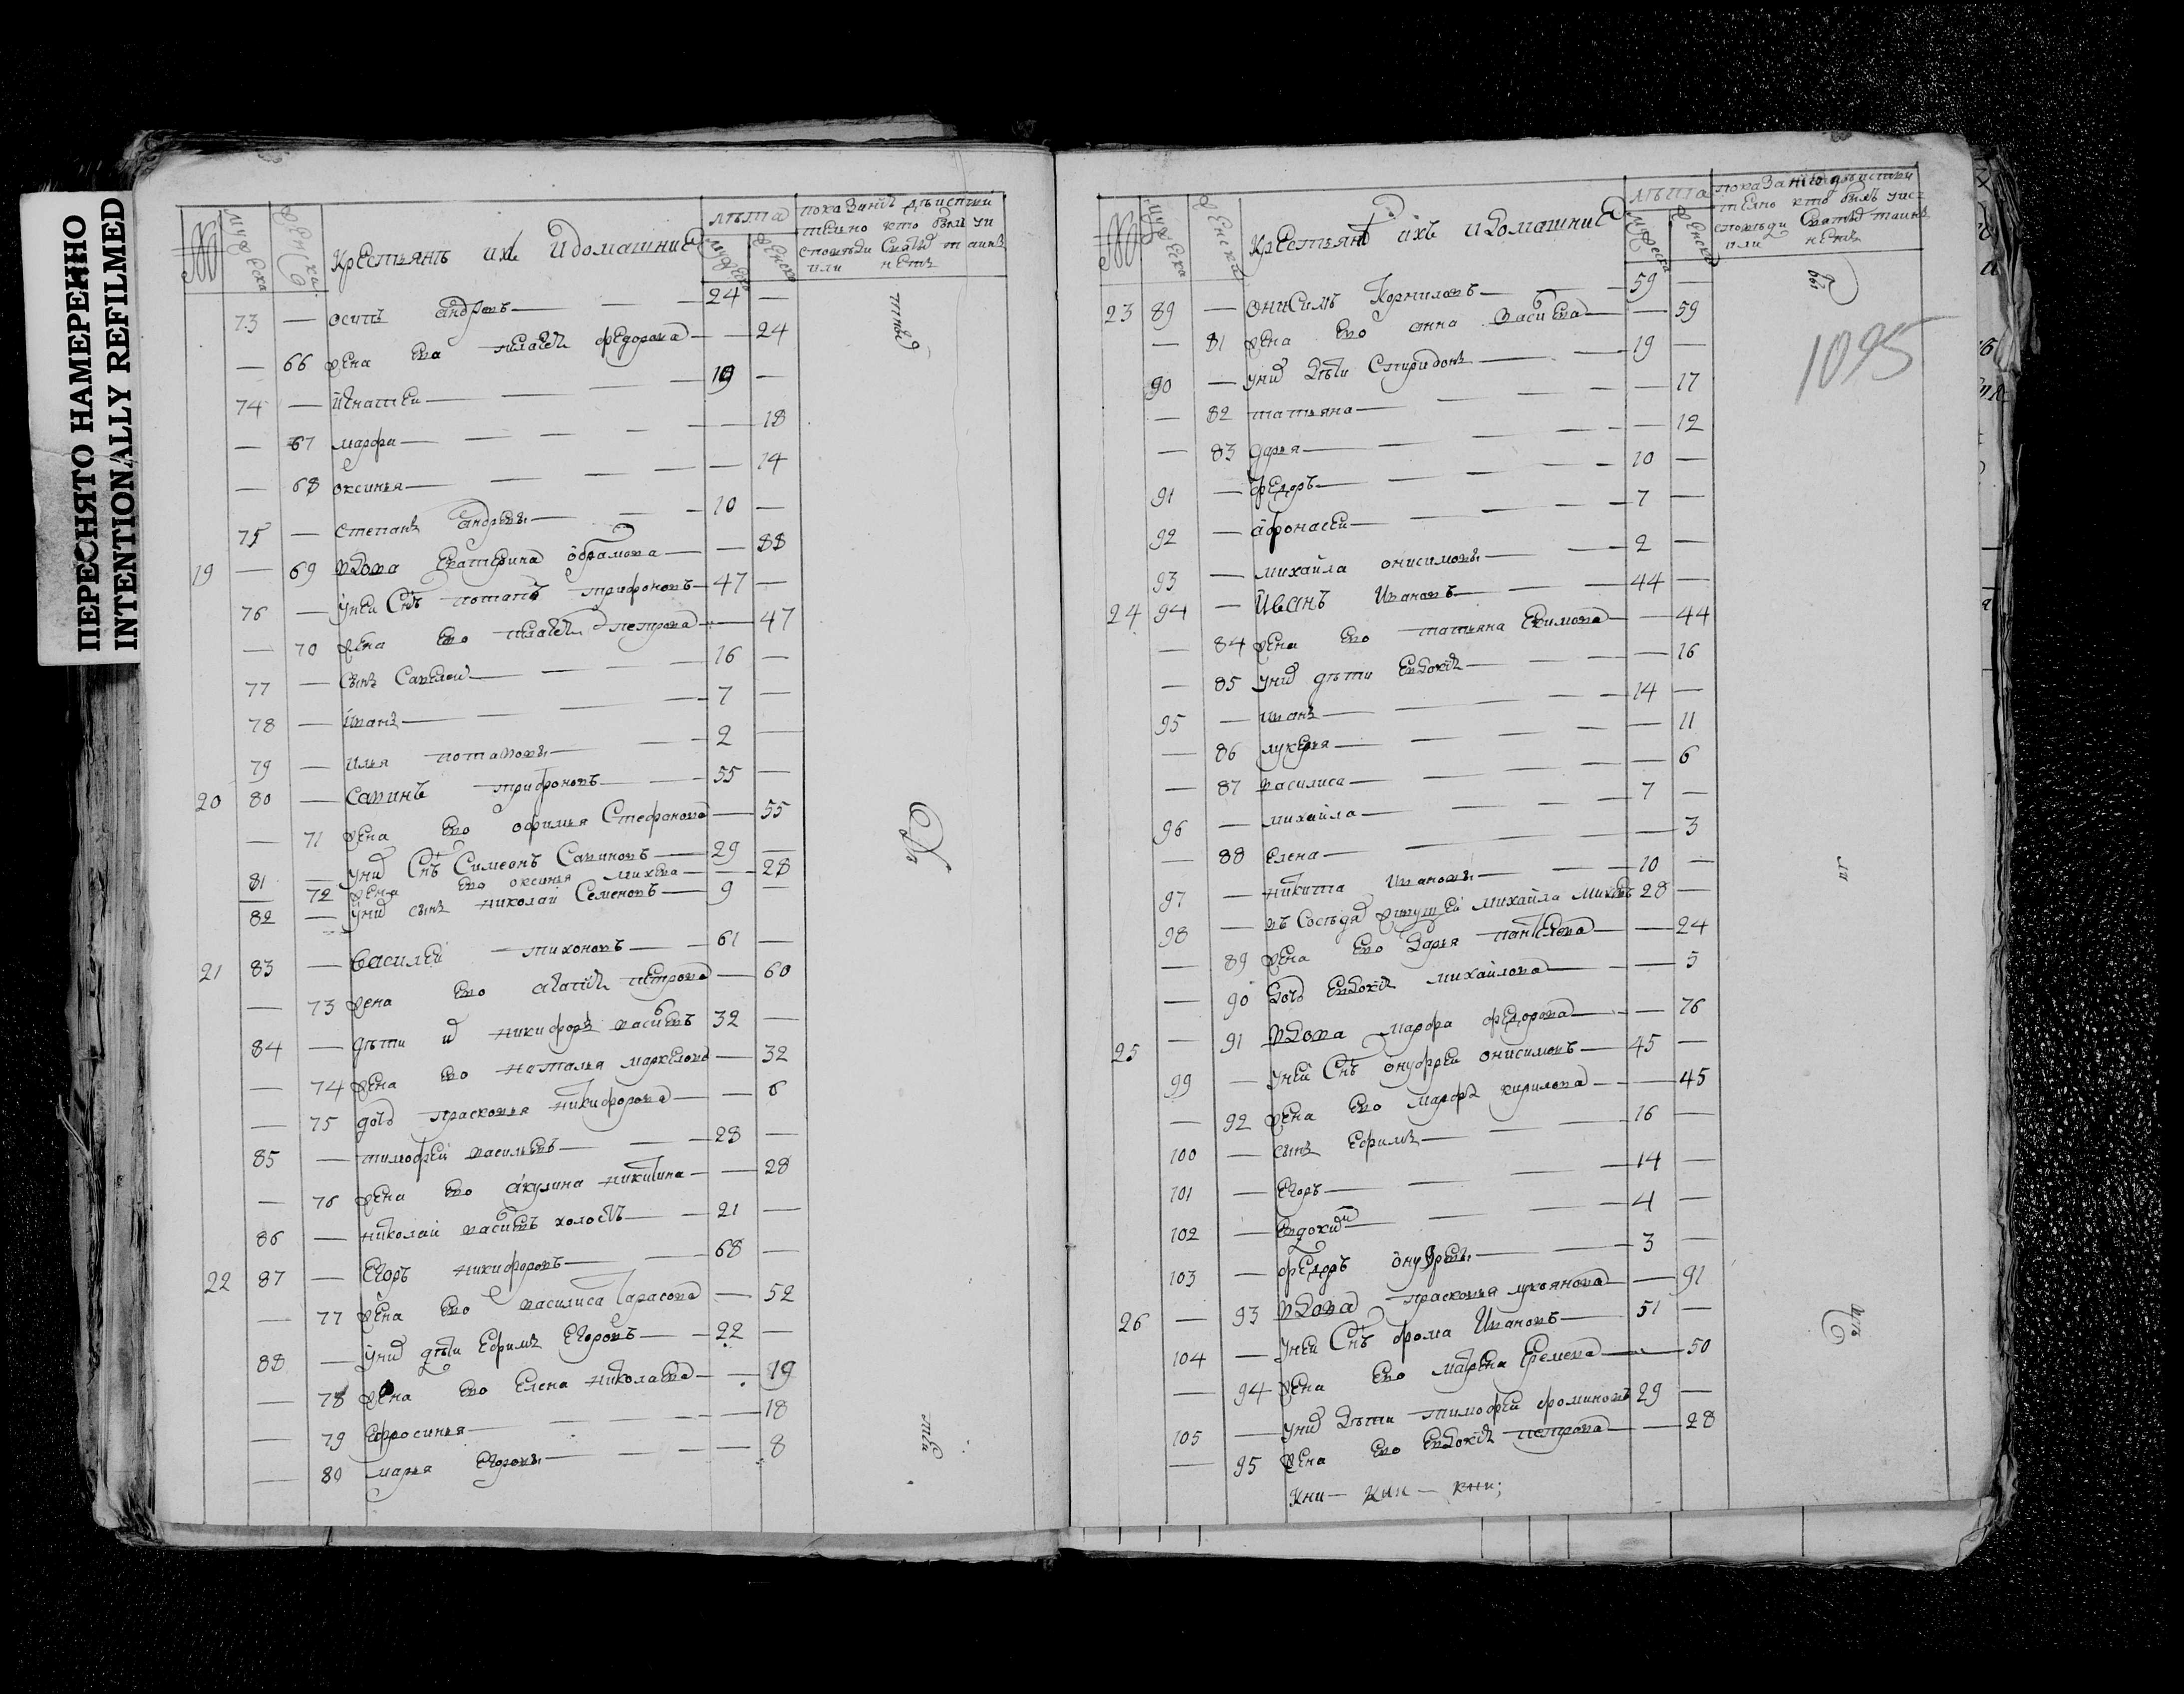 ПЕРЕСНЯТО НАМЕРЕННО
INTENTIONALLY REFILMED
№ мужеска женска крестьянъ ихъ и домашние лѣта показание дѣистви
мужеска женска тѣлно кто былъ у и
споведи святыхъ таинъ
или нетъ
73 — осипъ андреевъ — 24 —
— 66 жена ево пелагѣя федорова — 24
74 — игнатеи — 19 —
— 67 марфа — 18
— 68 оксинья — 14
75 — степанъ андреевы — 10 —
19 — 69 вдова екатерина обрамова — 88
76 — у неи снъ потапъ трифоновъ — 47 —
— 70 жена ево пелагѣя петрова — 47
77 — сынъ савелеи — 16 —
78 — иванъ — 7 —
79 — илья потаповы — 2 —
20 80 — савинъ трифоновъ — 55 —
— 71 жена ево офимья стефанова — 55
81 — у них снъ симеонъ савиновъ — 29 —
72 жена ево оксинья михева — 28
82 — у них сынъ николаи семеновъ — 9 —
21 83 — василеи тихоновъ — 61 —
— 73 жена ево агапия петрова — 60
84 — дѣти их никифоръ васиевъ 32 —
— 74 жена ево наталья маркелова — 32
— 75 дочь прасковья никифорова — 6
85 — тимофеи васильевъ — 28 —
— 76 жена ево акулина никитина — 28
86 — николаи васиевъ холостъ — 21 —
22 87 — егоръ никифоровъ — 68 —
— 77 жена ево василиса тарасова — 52
88 — у них дѣти ефимъ егоровъ — 22 —
— 78 жена ево елена николаева — 19
— 79 ефросинья — 18
— 80 марья егоровы — 8
№ мужеска женска крестьянъ ихъ и домашние лѣта показание дѣистви
мужеска женска телно кто былъ у ис
споведи святыхъ таинъ
или нетъ
1095
23 89 — онисимъ корниловъ — 59 —
— 81 жена ево анна васиева — 59
90 — у них дѣти спиридонъ — 19 —
— 82 татьяна — 17
— 83 дарья — 12
91 — федоръ — 10 —
92 — афонасеи — 7 —
93 — михаила онисимовы — 2 —
24 94 — иванъ ивановъ — 44 —
— 84 жена ево татьяна екимова — 44
— 85 у них дѣти евдокия — 16
95 — иванъ — 14 —
— 86 лукерья — 11
— 87 василиса — 6
96 — михаила — 7 —
— 88 елена — 3
97 — никита ивановы — 10 —
98 — въ соседях живущеи михаила михеевъ 28 —
— 89 жена ево дарья пантелеева — 24
— 90 дочь евдокия михаилова — 5
25 — 91 вдова марфа федорова — 76
99 — у неи снъ онуфреи онисимовъ — 45 —
— 92 жена ево марфа кирилова — 45
100 — сынъ ефимъ — 16 —
101 — егоръ — 14 —
102 — евдоким — 4 —
103 — федоръ онуфревы — 3 —
26 — 93 вдова прасковья лукянова — 91
104 — у неи снъ фома ивановъ — 51 —
— 94 жена ево матрена еремеева — 50
105 — у них дѣти тимофеи фоминовъ 29 —
— 95 жена ево евдокия петрова — 28